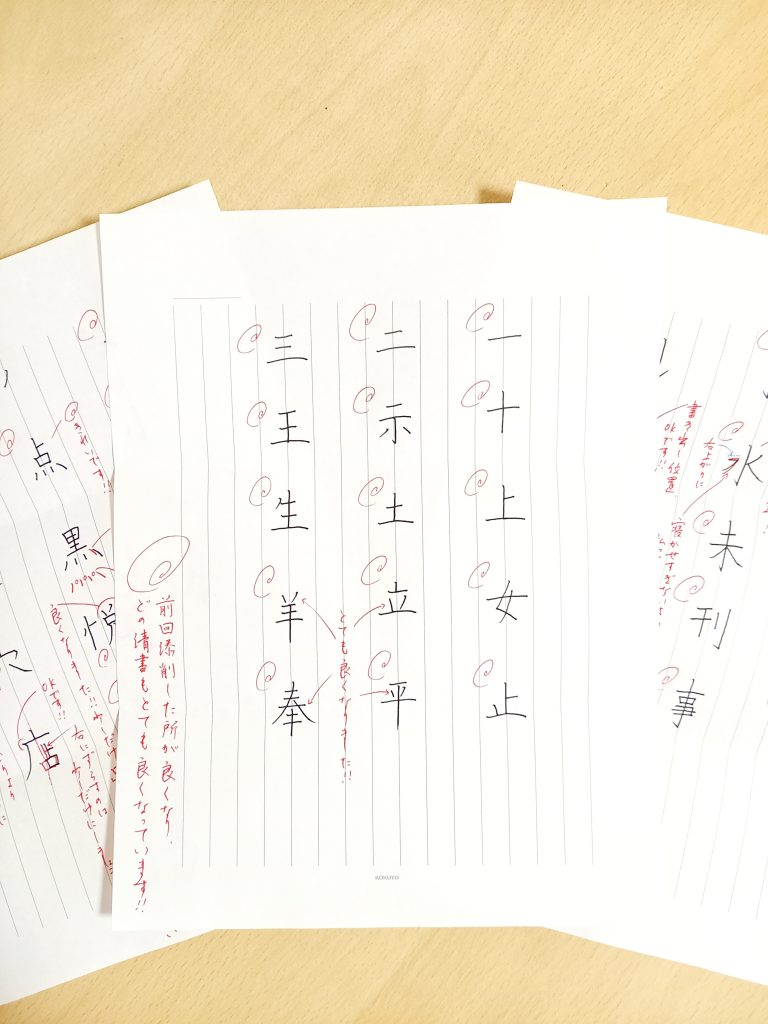 一
十
上
女
止
二
示
土
立
平
とても良くなりました!!
三
王
生
羊
奉
前回添削した所が良くなり、
どの清書もとても良くなっています!!
KOKUYO
水
未
刊
事
書き出し位置
OKです!!
右上がりに
寝かせすぎない
点
黒
悦
店
きれいです!!
良くなりました!!
OKです!!
右にずらすのは
少しだけにし